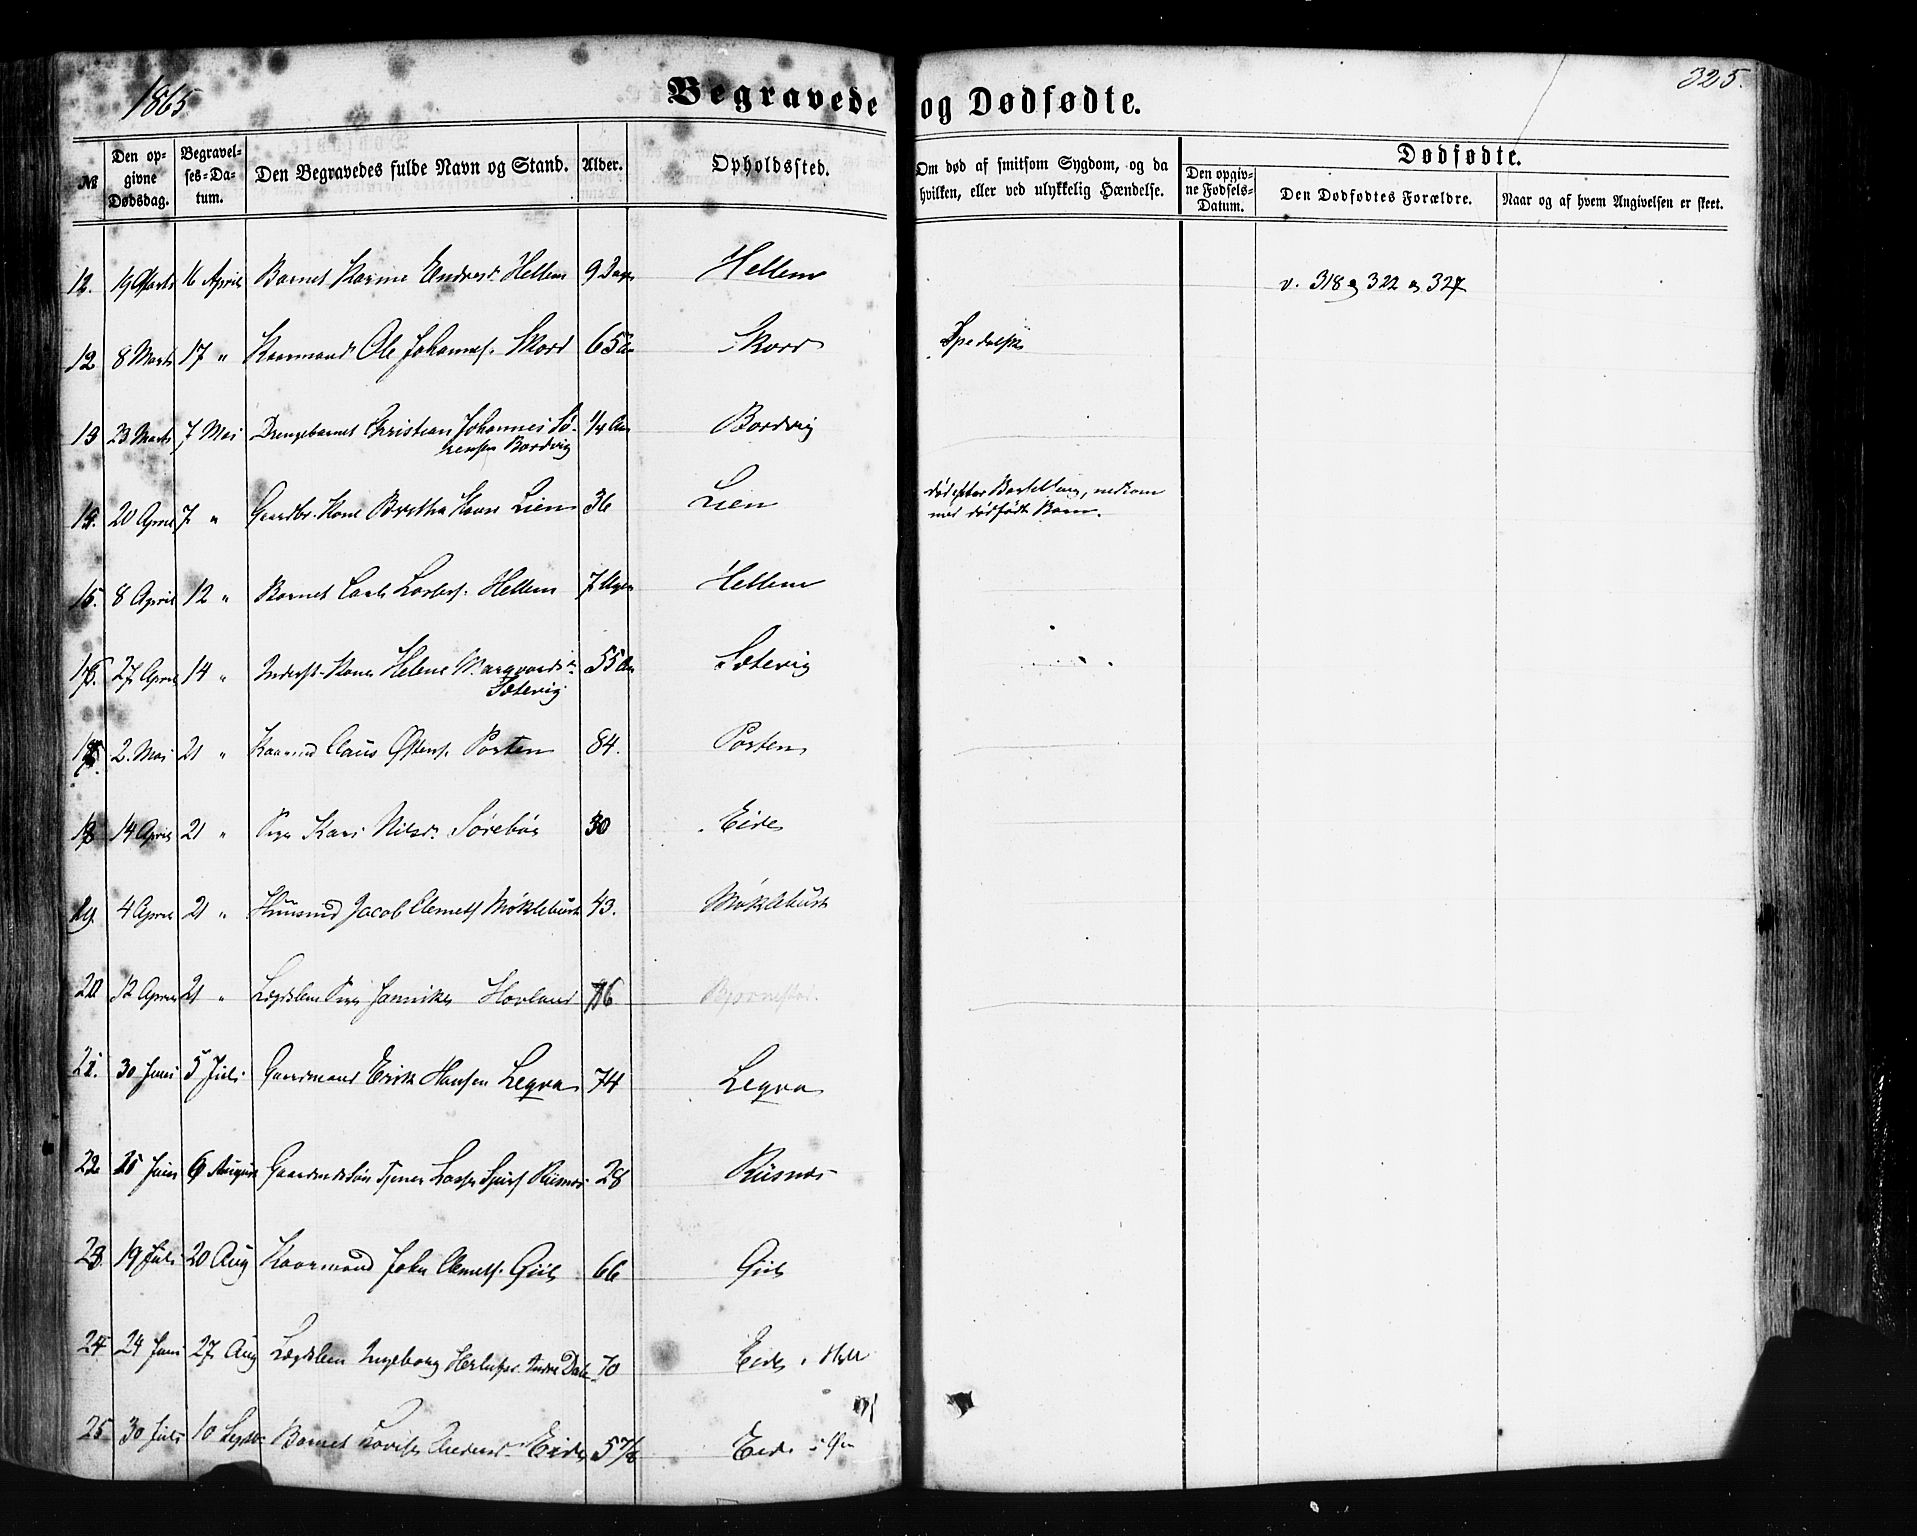 1865
Begravede og Dødfødte.
325.
№
Den opgivne Dødsdag.
Begravelses-Datum.
Den Begravedes fulde Navn og Stand.
Alder.
Opholdssted.
Om død af smitsom Sygdom, og da hvilken, eller ved ulykkelig Hændelse.
Dødfødte.
Den opgivne Fødsels-Datum.
Den Dødfødtes Forældre.
Naar og af hvem Angivelsen er skeet.
19 Marts 16 April Barnet Hellem 9 Dage Hellem v. 318 og 322 og 327
12 8 Marts 17 " Kaarmand Ole Johannes. Skord 65 Aar Skord Spedalsk
13 23 Marts 7 Mai Drengebarnet Christian Johannes Sø-
rensen Bordvig ¼ Aar Bordvig
20 April 7 " Gaardbr. Kone Brethe Lien 36 Lien død efter Barselseng, nedkom
med dødfødt Barn.
15. 8 April 12 " Barnet Hellem 7 Uger Hellem
16. 27 April 14 " Inderst. Kone Helene Marqvardsd.
Sætevig 55 Aar Sætevig
2. Mai 21 " Kaarmd Claus Østens. Porten 84. Porten
18 14 April 21 " Pige Kari Nilsd. Sørebøe 30 Eide
19. 4 April 21 " Huusmd Jacob Clemets Møklebust 43. Møklebust
20 12 April 21 " Lægdslem Pige Jannike Hovland 76
21. 30 Juni 5 Juli Gaardmand Erik Hansen Leqva 74 Leqva
22 25 Juni 6 August Gaardmdssøn Tjener Lasse Sjurs Riisnes 28 Riisnes
23. 19 Juli 20 Aug Kaarmand John Clemets. Giil 66 Giil
24 24 Juni 27 Aug Lægdslem Ingeborg Indre Dale 70 Eide i
25 30 Juli 10 Septbr Barnet Lovise Eide 5 7/8 Eide i